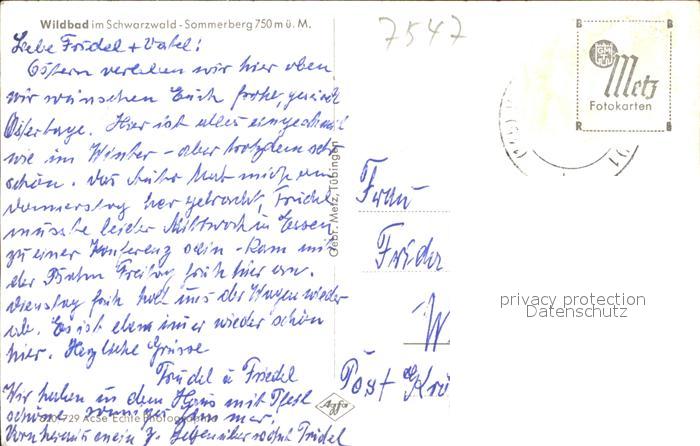 Wildbad im Schwarzwald - Sommerberg 750 m ü. M.
7547
Liebe Fridel + Vabel!
Ostern verleben wir hier oben,
wir wünschen Euch frohe,
Ostertage. Hier ist alles eingeschneit
wie im Winter - aber trotzdem sehr
schön. Das Auto hat mich am
Donnerstag her gebracht, Friedel
musste leider Mittwoch in Essen
zu einer Konferenz sein - kam mit
der Bahn Freitag früh hier an.
Dienstag früh holt uns der Wagen wieder
ab. Es ist eben immer wieder schön
hier. Herzliche Grüsse
Trudel u Friedel
Wir haben in dem Haus mit Pfeil
schöne sonnige Zimmer!
Gebr. Metz, Tübingen
Agfa
729 AcSe Echte Photographie
B B
Metz
Fotokarten
R B
Frau
Frieder
W
Post
privacy protection
Datenschutz